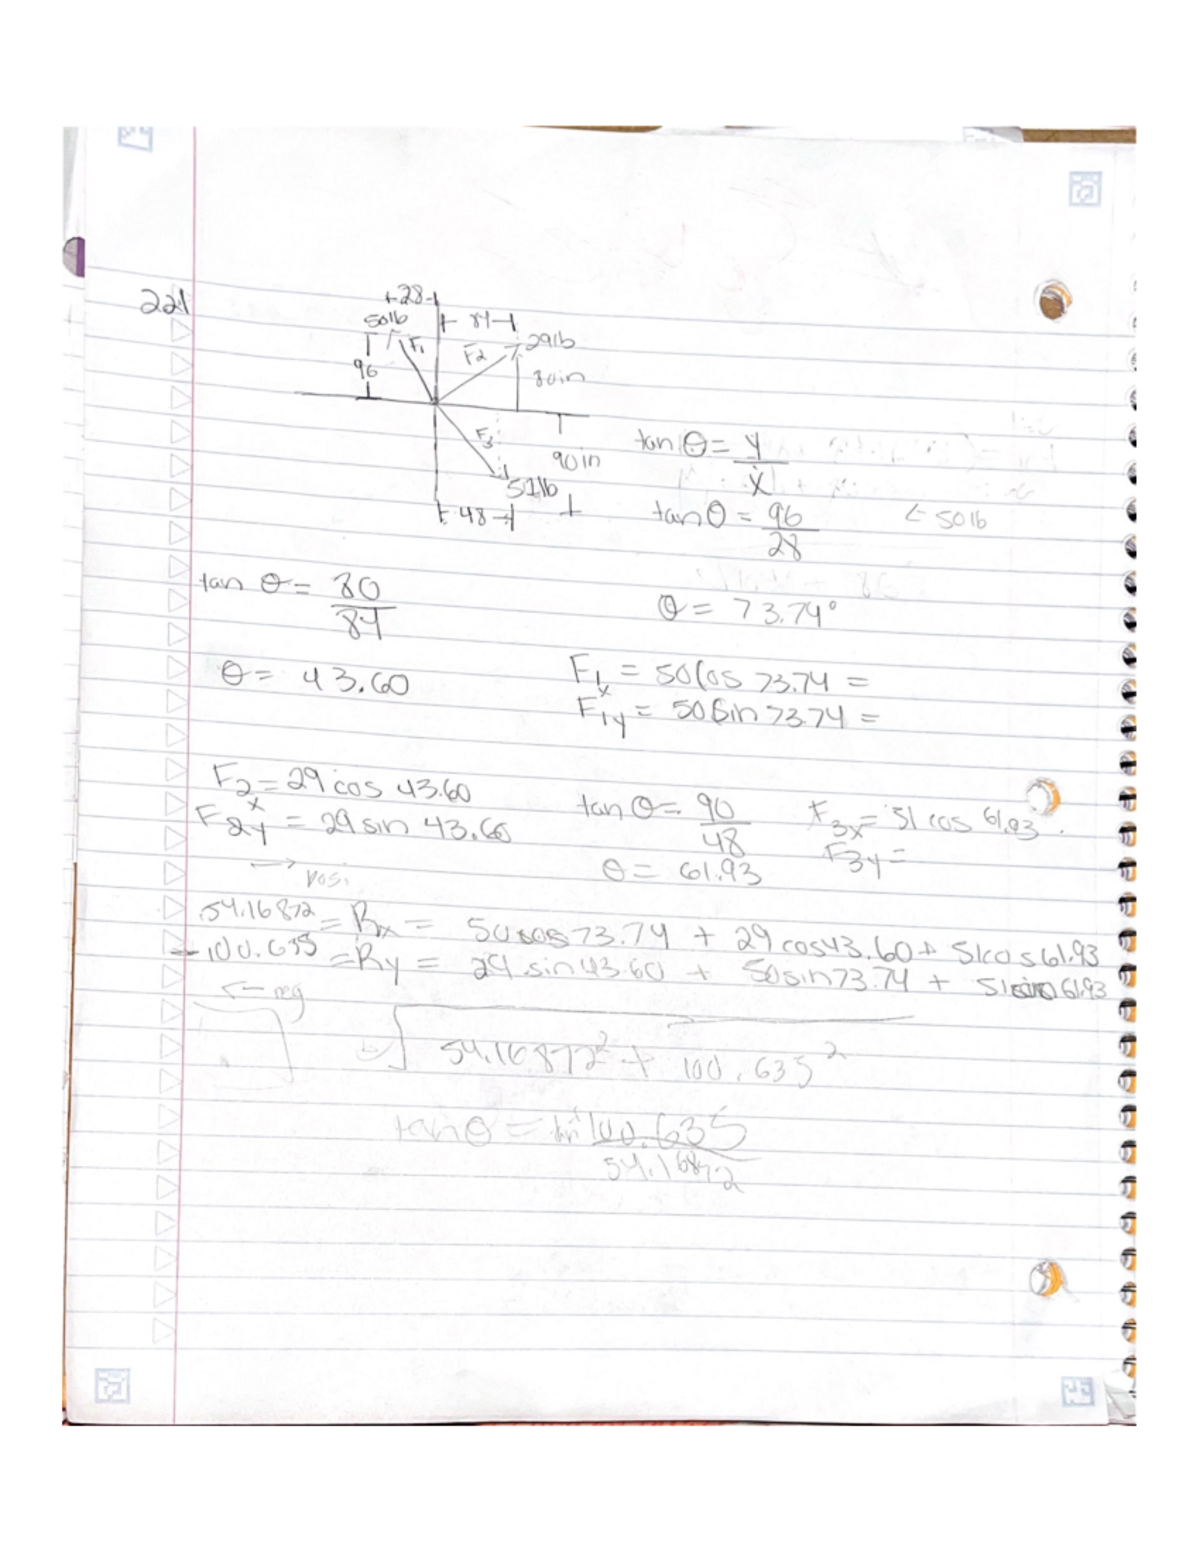 221
28
50lb
84
F1
F2
29lb
96
80in
F3
90in
51lb
48
tan θ = y/x
tan θ = 96/28
← 50lb
tan θ = 80/84
θ = 73.74°
θ = 43.60
F1x = 50 cos 73.74 =
F1y = 50 sin 73.74 =
F2x = 29 cos 43.60
F2y = 29 sin 43.60
tan θ = 90/48
F3x = 51 cos 61.93
F3y =
θ = 61.93
→ posi
54.16872 = Rx = 50 cos 73.74 + 29 cos 43.60 + 51 cos 61.93
-100.635 = Ry = 29 sin 43.60 + 50 sin 73.74 + 51 sin 61.93
← neg
√54.16872² + 100.635²
tan θ = 100.635/54.16872